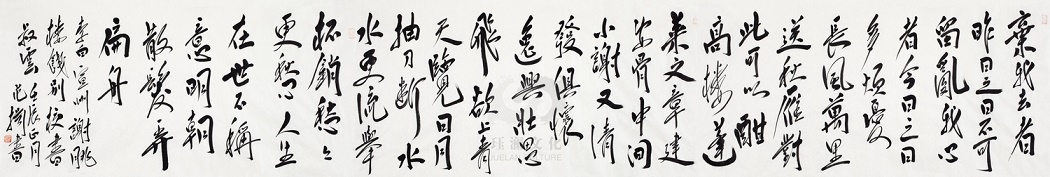 棄我去者
昨日之日不可
留亂我心
者今日之日
多煩憂
長風萬里
送秋雁對
此可以酣
高樓蓬
萊文章建
安骨中間
小謝又清
發俱懷
逸興壯思
飛欲上青
天覽日月
抽刀斷水
水更流舉
杯銷愁々
更愁人生
在世不稱
意明朝
散髮弄
扁舟
李白宣州謝朓
樓餞別校書
叔雲壬辰正月
書